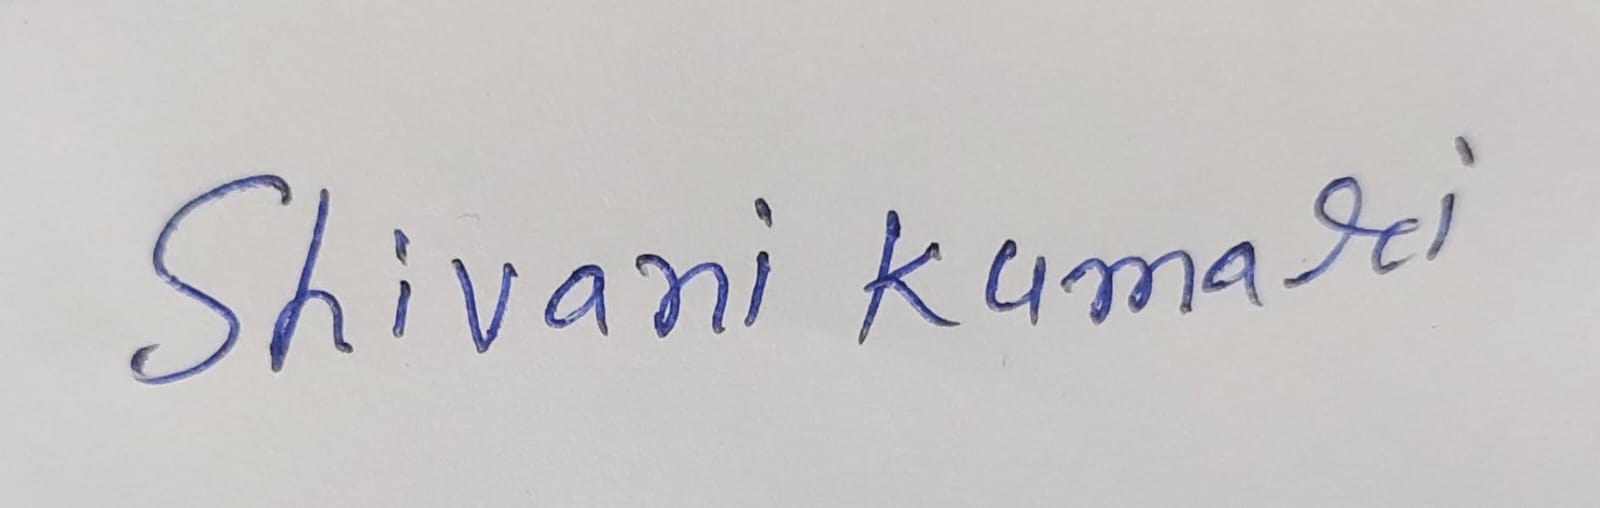 Shivani Kumari